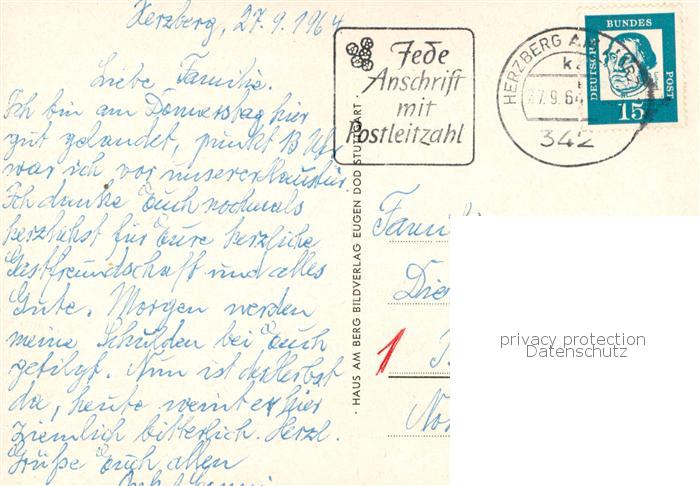 Herzberg, 27.9.1964
Liebe Familie.
Ich bin am Donnerstag hier
gut gelandet, punkt 13 Uhr
war ich vor unserer Haustür.
Ich danke Euch nochmals
herzlichst für Eure herzliche
Gastfreundschaft und alles
Gute. Morgen werden
meine Schulden bei Euch
getilgt. Nun ist der Herbst
da, heute weint er hier
ziemlich bitterlich. Herzl.
Grüße Euch allen
Jede
Anschrift
mit
Postleitzahl
HERZBERG AM HARZ
27.9.64
342
DEUTSCHE BUNDESPOST
15
· HAUS AM BERG BILDVERLAG EUGEN DOD STUTTGART ·
Famil
Die
1
No
privacy protection
Datenschutz